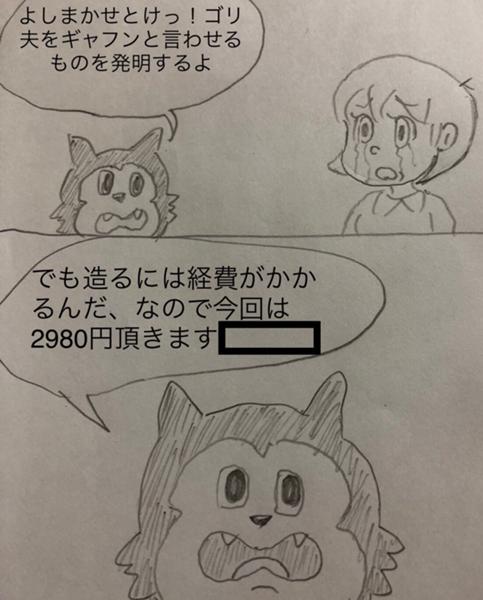 よしまかせとけっ！ゴリ
夫をギャフンと言わせる
ものを発明するよ
でも造るには経費がかか
るんだ、なので今回は
2980円頂きます